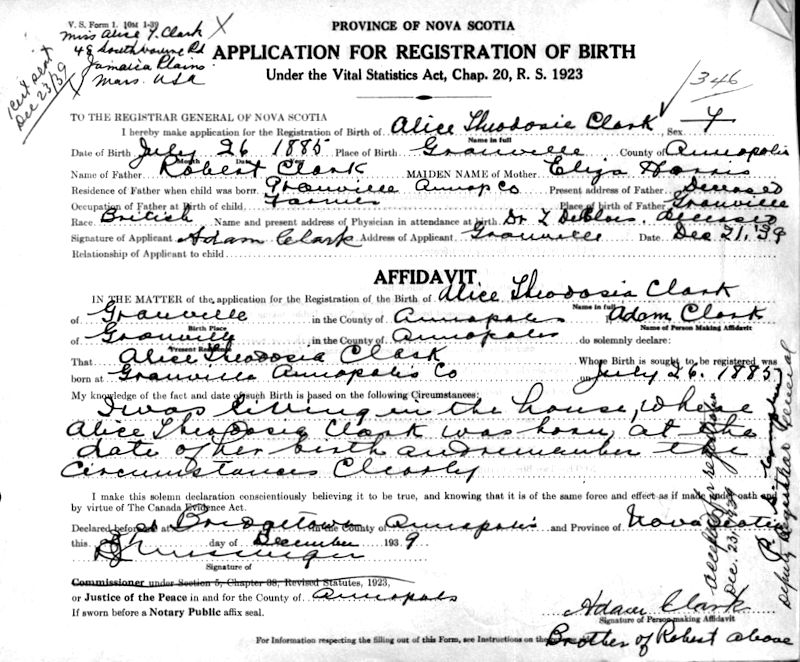 V. S. Form 1. 10M 1-39
Miss Alice T. Clark
48 Southbourne Rd
Jamaica Plains
Mass. USA
Cert sent
Dec 23/39
PROVINCE OF NOVA SCOTIA
APPLICATION FOR REGISTRATION OF BIRTH
Under the Vital Statistics Act, Chap. 20, R. S. 1923
346
TO THE REGISTRAR GENERAL OF NOVA SCOTIA
I hereby make application for the Registration of Birth of Alice Theodosia Clark Sex F
Name in full
Date of Birth July 26 1885 Place of Birth Granville County of Annapolis
Month Date
Name of Father Robert Clark MAIDEN NAME of Mother Eliza Harris
Residence of Father when child was born Granville Annap Co Present address of Father Deceased
Occupation of Father at Birth of child Farmer Place of birth of Father Granville
Race British Name and present address of Physician in attendance at birth Dr. L DeBlois. deceased
Signature of Applicant Adam Clark Address of Applicant Granville Date Dec 21, '39
Relationship of Applicant to child
AFFIDAVIT
IN THE MATTER of the application for the Registration of the Birth of Alice Theodosia Clark
Name in full
of Granville in the County of Annapolis Adam Clark
Birth Place Name of Person Making Affidavit
of Granville in the County of Annapolis do solemnly declare:
Present Residence
That Alice Theodosia Clark Whose Birth is sought to be registered was
born at Granville Annapolis Co on July 26. 1885
My knowledge of the fact and date of such Birth is based on the following Circumstances:
I was living in the house, where
Alice Theodosia Clark was born, at the
date of her birth and remember the
Circumstances Clearly
I make this solemn declaration conscientiously believing it to be true, and knowing that it is of the same force and effect as if made under oath and
by virtue of The Canada Evidence Act.
Declared before me at Bridgetown in the County of Annapolis and Province of Nova Scotia
this day of December 1939
Signature of
Commissioner under Section 5, Chapter 38, Revised Statutes, 1923,
or Justice of the Peace in and for the County of Annapolis
If sworn before a Notary Public affix seal.
Adam Clark
Signature of Person making Affidavit
Brother of Robert above
For Information respecting the filling out of this Form, see Instructions on the
Accepted for registration
Dec. 23/1939
Deputy Registrar General